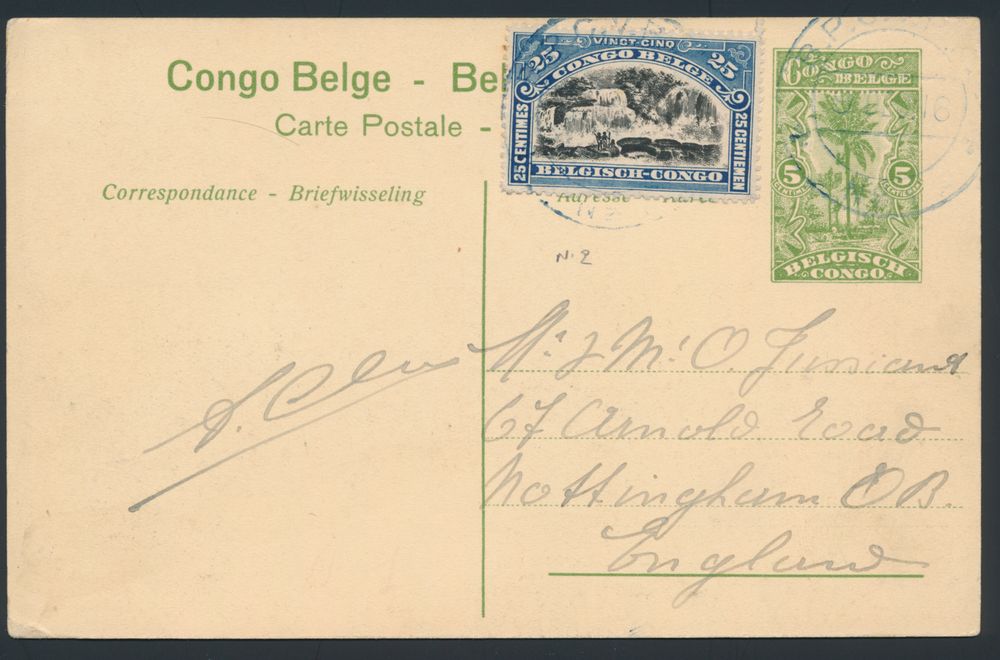 Congo Belge - Bel
Carte Postale -
Correspondance - Briefwisseling
25 VINGT-CINQ 25
CONGO BELGE
25 CENTIMES
25 CENTIEMEN
BELGISCH-CONGO
CONGO
BELGE
5 5
BELGISCH
CONGO
N.2
Mr J Mc O.
67 Arnold Road
Nottingham OB.
England